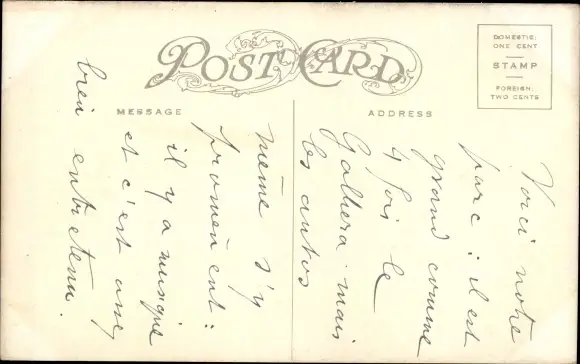 POST CARD
DOMESTIC:
ONE CENT
STAMP
FOREIGN:
TWO CENTS
MESSAGE
ADDRESS
Voici notre
parc : il est
grand comme
4 fois le
mais
les autos
même s'y
promènent :
il y a musique
et c'est
bien entretenu.